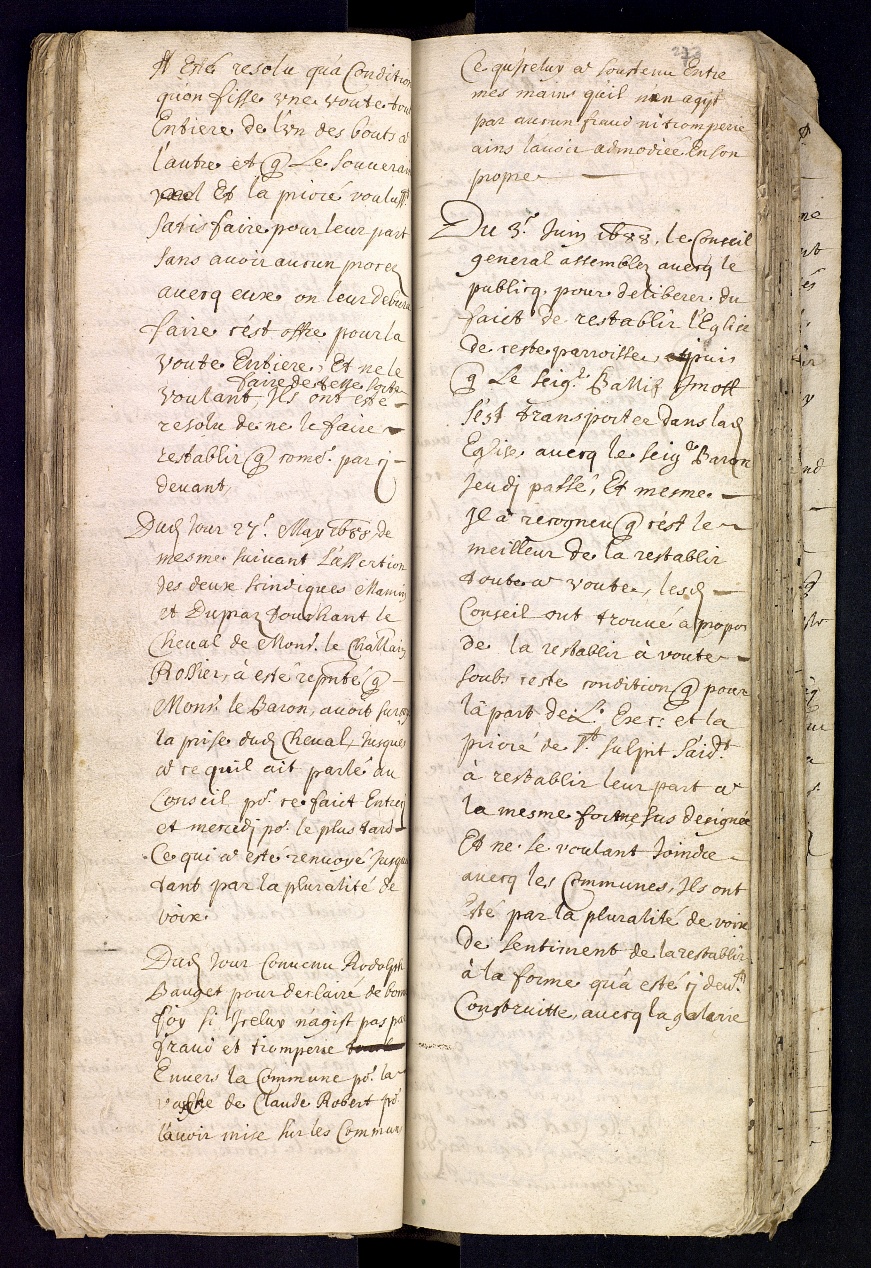 A Esté resolu qu'a Condition
qu'on fisse vne voute tout
Entiere de l'vn des bouts a
l'autre et q Le Souverain
Et la prioré voulust
satisfaire pour leur part
sans avoir aucun proces
avecq eux on leur debura
faire c'est offre pour la
voute Entiere, Et ne le
faire de ceste sorte
voulant, Ils ont esté
resolu de ne le faire
restablir q come par cj
devant,
Dud Jour 27e May 1688 de
mesme suivant L'assertion
des deux sindiques Mamin
et Dupraz touchant le
Cheval de Monsr le Chastlain
Rossier, a esté reputé q
Monsr le Baron, avoit sur
la prise dud Cheval, Jusques
a ce quil ait parlé au
Conseil po ce faict Entre cj
et mercedj po le plus tard
Ce qui a esté renvoyé Jusqua
tant par la pluralité de
voix
Dud Jour Convenu Rodolph
Bauget pour desclairé de bonne
foy si Jceluy n'agist pas par
fraud et tromperie
Envers la Commune po la
vache de Claude Robert po
l'avoir mise sur les Commun
213
Ce qu'jceluy a soustenu Entre
mes mains quil n'en agist
par aucun fraud ni tromperie
ains lavoir admodiée En son
propre
Du 3e Juin 1688, le Conseil
general assemblez avecq le
publicq pour deliberer du
faict de restablir l'Eglise
de ceste parroisse, puis
q Le Seigr Ballif Imoff
s'est transportee dans lad
Eglise avecq le Seigr Baron
Jeudj passé, Et mesme
Jl a recogneu q c'est le
meilleur de la restablir
toute a voute, lesd
Conseil ont trouué a propos
de la restablir à voute
soubs ceste condition q pour
la part de L. Exce et la
prioré de St Sulpit s'aidt
à restablir leur part a
la mesme forme sus designée
Et ne se voulant Joindre
avecq les Communes, Ils ont
Esté par la pluralité de voix
de sentiment de la restablir
à la forme qu'a esté cj devt
Construitte, avecq la galarie